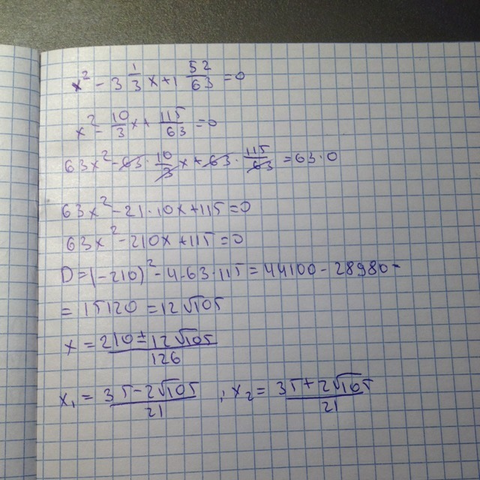 x² - 3 1/3 x + 1 52/63 = 0
x² - 10/3 x + 115/63 = 0
63x² - 63 · 10/3 x + 63 · 115/63 = 63 · 0
63x² - 21 · 10x + 115 = 0
63x² - 210x + 115 = 0
D = (-210)² - 4 · 63 · 115 = 44100 - 28980 =
= 15120 = 12√105
x = (210 ± 12√105)/126
x₁ = (35 - 2√105)/21 , x₂ = (35 + 2√105)/21